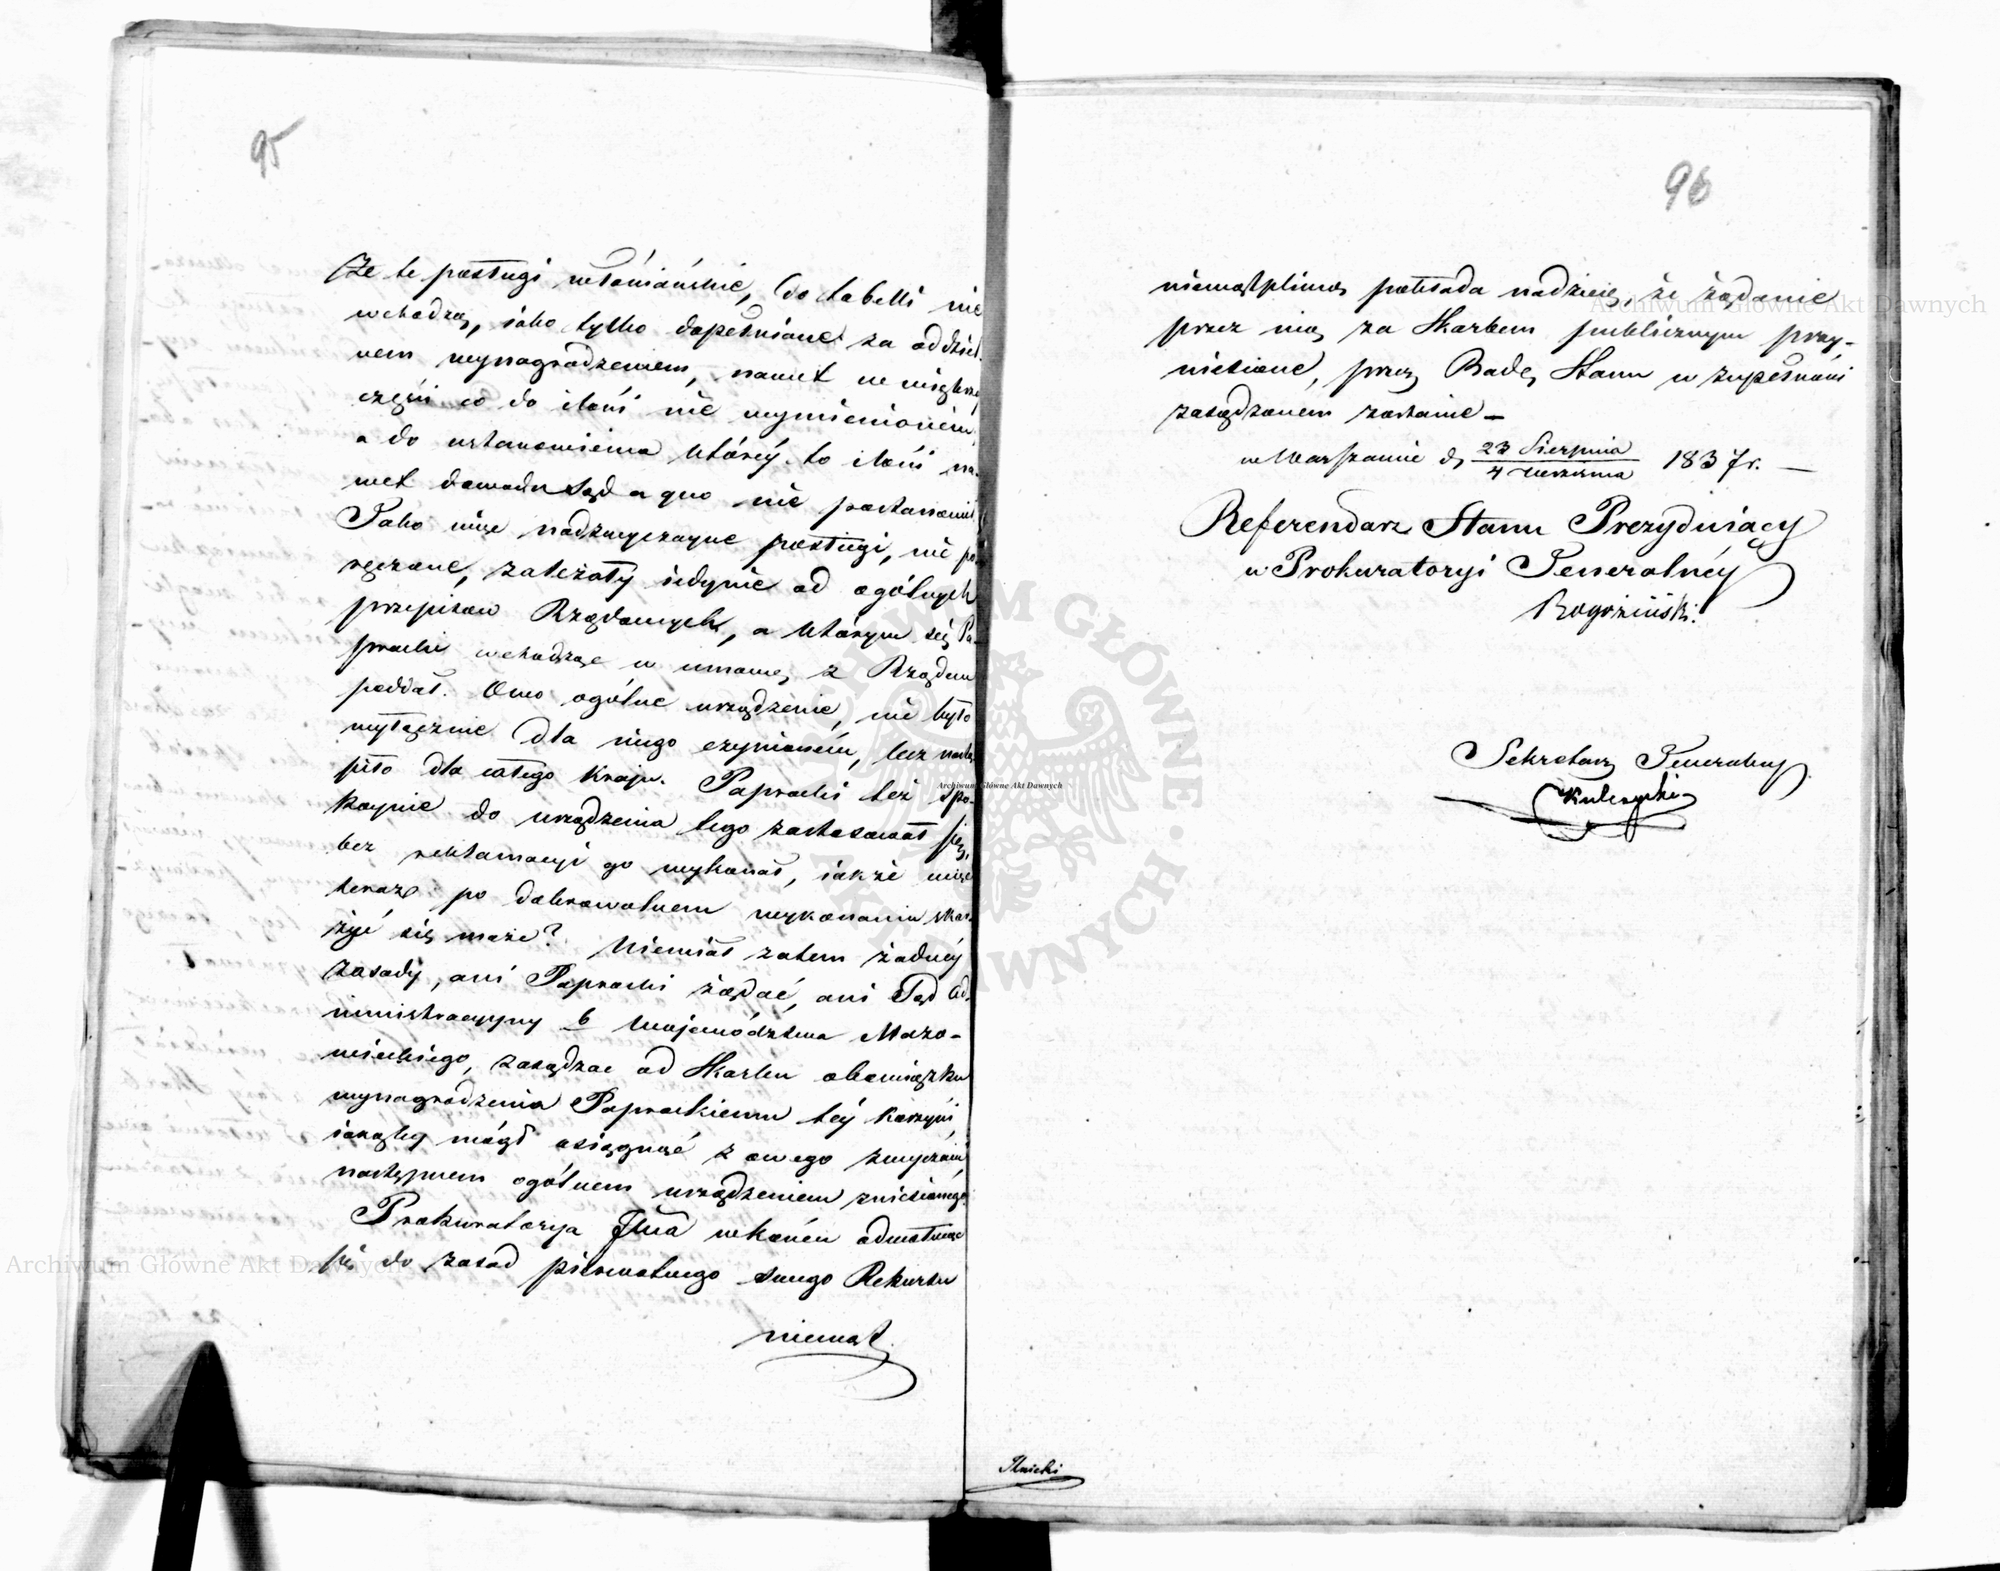 95
Że te posługi włościańskie, do tabelli nie
wchodzą, jako tylko dopełniane za oddziel-
nem wynagrodzeniem, nawet w większej
części co do ilości nie wymienionem,
a do ustanowienia której to ilości na-
wet dowodu Sąd a quo nie postanowił
Jako więc nadzwyczayne posługi, nie po-
ręczone, zależały iedynie od ogólnych
przepisów Rządowych, a którym się Pa-
procki wchodząc w umowę z Rządem
poddał. Owo ogólne urządzenie, nie było
wyłącznie dla niego czynionem, lecz nastą-
piło dla całego kraju. Paprocki też spo-
koynie do urządzenia tego zastosował się,
bez reklamacyi go wykonał, iakże więc
teraz po dobrowolnem wykonaniu skar-
żyć się może? Niemiał zatem żadnéy
zasady, ani Paprocki żądać, ani Sąd Ad-
ministracyyny b Województwa Mazo-
wieckiego, zasądzać od Skarbu obowiązku
wynagrodzenia Paprockiemu téy korzyści,
iakąby mógł osiągnąć z owego zwyczaju,
następnem ogólnem urządzeniem zniesionego.
Prokuratorya Jlna wkońcu odwołuiąc
się do zasad pierwotnego swego Rekursu
niewąt
96
niewątpliwą posiada nadzieię, że żądanie
przez nią za Skarbem publicznym przy-
niesione, przez Radę Stanu w zupełności
zasądzonem zostanie –
w Warszawie d. 23 Sierpnia / 4 Września 1837 r. —
Referendarz Stanu Prezyduiący
w Prokuratoryi Jeneralnéy
Rogoziński.
Sekretarz Jeneralny
Kulczycki
Ilnicki
Archiwum Główne Akt Dawnych
Archiwum Główne Akt Dawnych
Archiwum Główne Akt Dawnych
ARCHIWUM GŁÓWNE AKT DAWNYCH